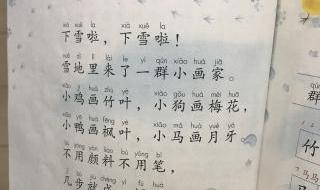 xià xuě la xià xuě la
下雪啦，下雪啦！
xuě dì lǐ lái le yì qún xiǎo huà jiā
雪地里来了一群小画家。
xiǎo jī huà zhú yè xiǎo gǒu huà méi huā
小鸡画竹叶，小狗画梅花，
xiǎo yā huà fēng yè xiǎo mǎ huà yuè yá
小鸭画枫叶，小马画月牙
bú yòng yán liào bú yòng bǐ
不用颜料不用笔，
jǐ bù jiù chéng yì fú huà
几步就成
群